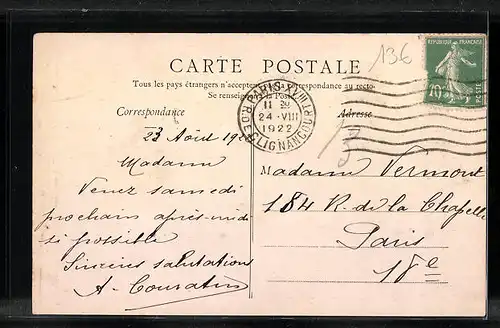 136
CARTE POSTALE
RÉPUBLIQUE FRANÇAISE
10c
Tous les pays étrangers n'acceptent pas la correspondance au recto
Se renseigner à la Poste
PARIS XVIII
11 30
24 - VIII
1922
R. DE CLIGNANCOURT
Correspondance
Adresse
23 Août 192
Madame
Venez samedi
prochain après-midi
si possible
Sincères salutations
A. Couratin
Madame Vermont
184 R. de la Chapelle
Paris
18e